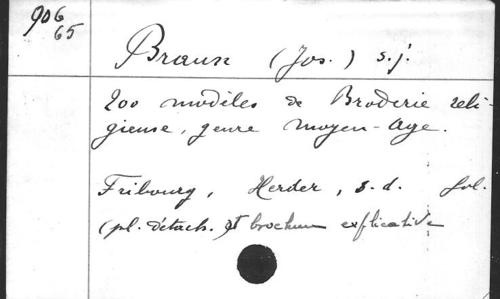 906
65
Braun (Jos.) s.j.
200 modèles de Broderie reli-
gieuse, genre moyen-âge.
Fribourg, Herder, s.d. fol.
(pl. détach.) et brochure explicative